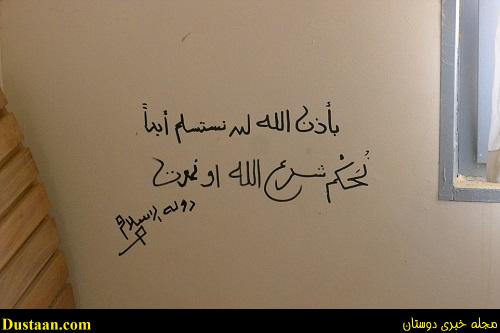 بأذن الله لن نستسلم أبداً
نُحَكم شرع الله او نموت
دولة الاسلام
Dustaan.com
مجله خبری دوستان